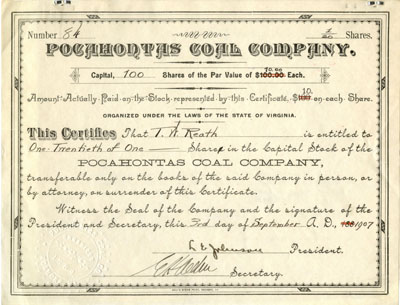 Number 84 Shares.
POCAHONTAS COAL COMPANY,
Capital, 100 Shares of the Par Value of $100.00 Each. 10.00
Amount Actually Paid on the Stock represented by this Certificate, $ 10 on each Share.
ORGANIZED UNDER THE LAWS OF THE STATE OF VIRGINIA.
This Certifies That T. W. Keath is entitled to
One Twentieth of One Share in the Capital Stock of the
POCAHONTAS COAL COMPANY,
transferable only on the books of the said Company in person, or
by attorney, on surrender of this Certificate.
Witness the Seal of the Company and the signature of the
President and Secretary, this 3rd day of September A. D., 1907
President.
Secretary.